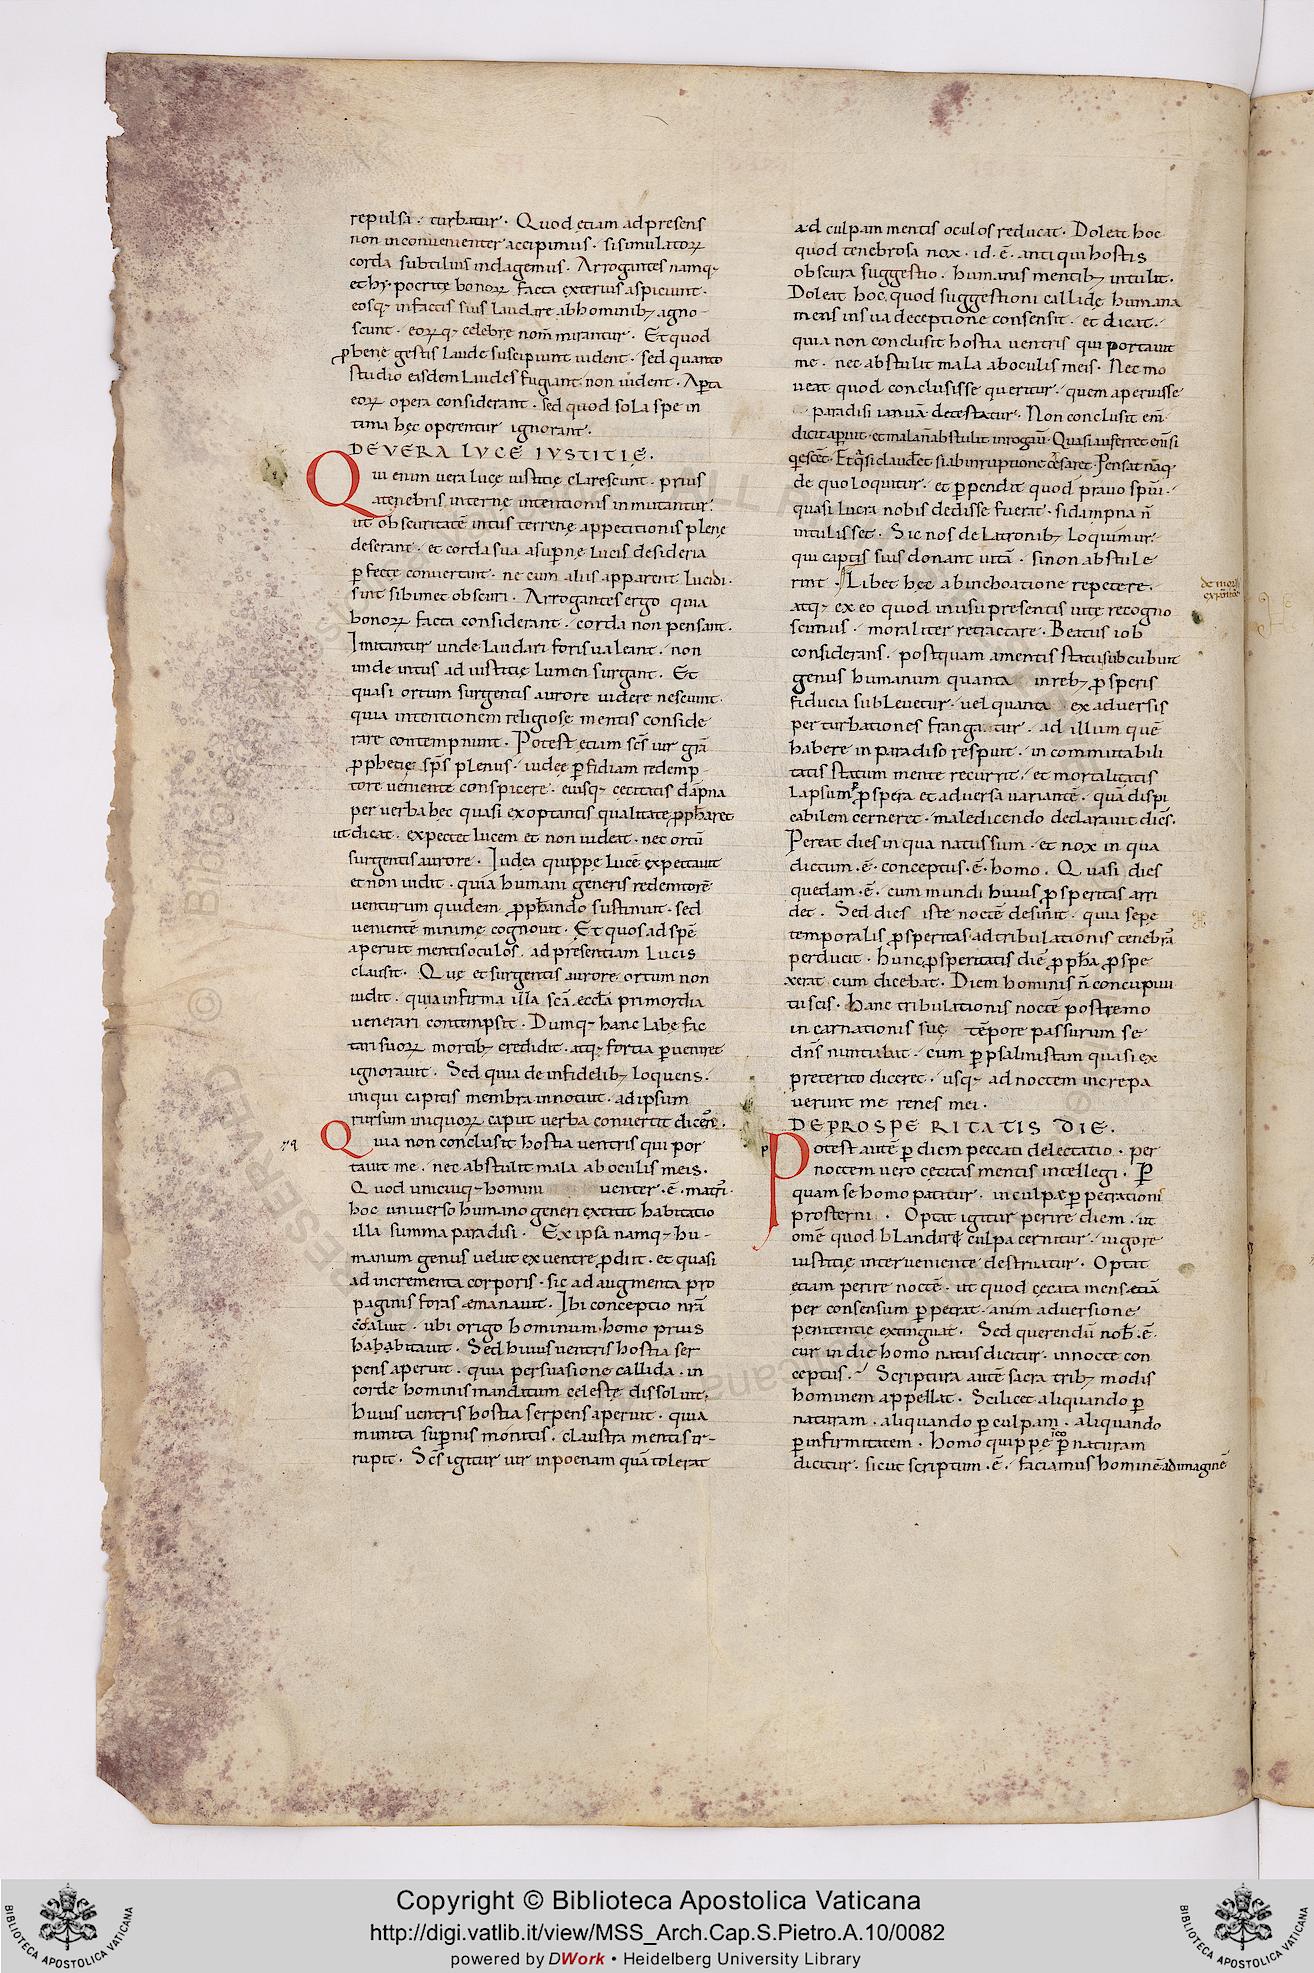 repulsa · turbatur · Quod etiam ad presens
non inconuenienter accipimus · si simulatoꝝ
corda subtilius indagemus · Arrogantes namq;
et hypocritę bonoꝝ facta exterius aspiciunt ·
eosq; in factis suis laudare ab hominibꝫ agno-
scunt · eoꝝq; celebre nom̄ mirantur · Et quod
ꝓ bene gestis laude suscipiunt uident · sed quanto
studio easdem laudes fugiant non uident · Aꝑta
eoꝝ opera considerant · sed quod sola spe in
tima hęc operentur ignorant ·
DE VERA LVCE IVSTITIĘ ·
Qui enim uera luce iustitię clarescunt · prius
a tenebris internę intentionis inmutantur ·
ut obscuritatē intus terrenę appetitionis plene
deserant · et corda sua a suꝑnę lucis desideria
ꝑfecte conuertunt · ne cum aliis apparent lucidi ·
sint sibimet obscuri · Arrogantes ergo quia
bonoꝝ facta considerant · corda non pensant ·
Imitantur unde laudari foris ualeant · non
unde intus ad iustitię lumen surgant · Et
quasi ortum surgentis aurore uidere nesciunt ·
quia intentionem religiose mentis conside
rare contempnunt · Potest etiam scs̄ uir grā
ꝓphetię sps̄ plenus · iudeę ꝑfidiam redemp-
tore ueniente conspicere · eiusq; cecitatis dāpna
per uerba hęc quasi exoptantis qualitate ꝓpharet
ut dicat · expectet lucem et non uideat · nec ortū
surgentis aurore · Iudea quippe lucē expectauit
et non uidit · quia humani generis redemtorē
uenturum quidem ꝓphando sustinuit · sed
uenientē minime cognouit · Et quos ad spē
aperuit mentis oculos · ad presentiam lucis
clausit · Quę et surgentis aurore ortum non
uidit · quia infirma illa scā eccla primordia
uenerari contempsit · Dumq; hanc labefac
tari suoꝝ mortibꝫ credidit · atq; fortia ꝑueniret
ignorauit · Sed quia de infidelibꝫ loquens ·
iniqui capitis membra innotuit · ad ipsum
rursum iniquoꝝ caput uerba conuertit dicere ·
Quia non conclusit hostia uentris qui por
tauit me · nec abstulit mala ab oculis meis ·
Quod unicuiq; homini uenter · ē · matri ·
hoc uniuerso humano generi extitit habitatio
illa summa paradisi · Ex ipsa namq; hu-
manum genus uelut ex uentre ꝓdiit · et quasi
ad incrementa corporis · sic ad augmenta pro
paginis foras emanauit · Ibi conceptio nrā
coaluit · ubi origo hominum · homo prius
hababitauit · Sed huius uentris hostia ser
pens aperuit · quia persuasione callida · in
corde hominis mandatum celeste dissoluit ·
huius uentris hostia serpens aperuit · quia
munita suꝑnis monitis · claustra mentis ir-
rupit · Scs̄ igitur uir in poenam quā tolerat
ad culpam mentis oculos reducat · Doleat hoc
quod tenebrosa nox · id · ē · antiqui hostis
obscura suggestio · humanis mentibꝫ intulit ·
Doleat hoc quod suggestioni callidę humana
mens in sua deceptione consensit · et dicat ·
quia non conclusit hostia uentris qui portauit
me · nec abstulit mala ab oculis meis · Nec mo
ueat quod conclusisse queritur · quem aperuisse
paradisi ianuā detestatur · Non conclusit em̄
dicit aꝑuit · et mala n̄ abstulit inrogauit · Quasi auferret em̄ si
quiescet · Et quasi clauderet si ab inruptione cessaret · Pensat nāq
de quo loquitur · et ꝑpendit quod prauo spūi ·
quasi lucra nobis dedisse fuerat · si dampna n̄
intulisset · Sic nos de latronibꝫ loquimur ·
qui captis suis donant uitā · si non abstule
rint · Libet hęc ab inchoatione repetere ·
atq; ex eo quod in usu presentis uitę recogno
scimus · moraliter retractare · Beatus iob
considerans · postquam a mentis statu subcubuit
genus humanum quanta in rebꝫ ꝓsperis
fiducia subleuetur · uel quanta ex aduersis
perturbationes frangatur · ad illum quē
habere in paradiso respuit · incommutabili
tatis statum mente recurrit · et mortalitatis
lapsum ꝑ ꝓspera et aduersa uariantē · quā dispi
cabilem cerneret · maledicendo declarauit dicēs ·
Pereat dies in qua natus sum · et nox in qua
dictum · ē · conceptus · ē · homo · Quasi dies
quedam · ē · cum mundi huius ꝓsperitas arri
det · Sed dies iste noctē desinit · quia sepe
temporalis ꝓsperitas ad tribulationis tenebrā
perducit · Hunc ꝓsperitatis diē ꝓpha ꝓspe
xerat cum dicebat · Diem hominis n̄ concupiui
tu scis · hanc tribulationis noctē postremo
incarnationis suę tēpore passurum se
dn̄s nuntiabat · cum ꝑ psalmistam quasi ex
preterito diceret · usq; ad noctem increpa
uerunt me renes mei ·
DE PROSPERITATIS DIE ·
Potest autē ꝑ diem peccati delectatio · per
noctem uero cęcitas mentis intellegi · Per
quam se homo patitur · in culpę ꝑpetrationi
prosterni · Optat igitur perire diem · ut
omē quod blandire culpa cernitur · uigore
iustitię interueniente destruatur · Optat
etiam perire noctē · ut quod cęcata mens etiā
per consensum ꝑpetrat · animaduersione
penitentię extinguat · Sed querendū nob̄ · ē ·
cur in die homo natus dicitur · in nocte con
ceptus · Scriptura autē sacra tribꝫ modis
hominem appellat · Scilicet aliquando ꝑ
naturam · aliquando ꝑ culpam · aliquando
ꝑ infirmitatem · Homo quippe ꝑ naturam
dicitur · sicut scriptum · ē · faciamus hominē ad imaginē
79
Copyright © Biblioteca Apostolica Vaticana
http://digi.vatlib.it/view/MSS_Arch.Cap.S.Pietro.A.10/0082
powered by DWork • Heidelberg University Library
BIBLIOTECA APOSTOLICA VATICANA
BIBLIOTECA APOSTOLICA VATICANA